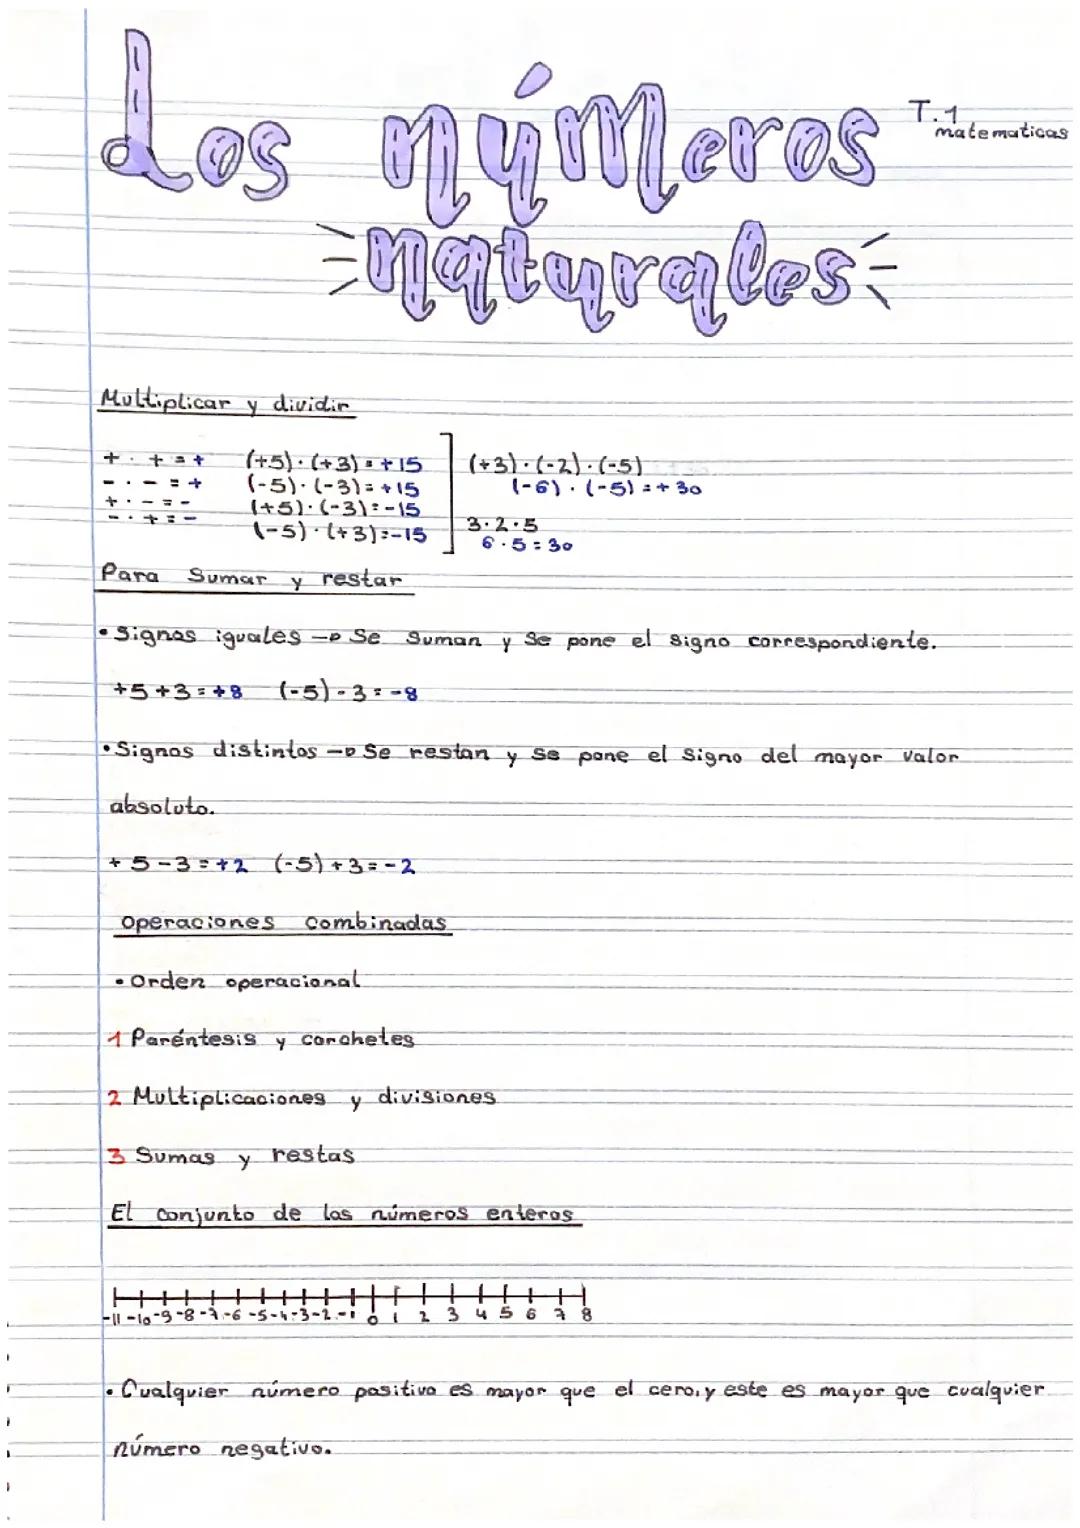 Los números
T.1
matematicas
naturales
Multiplicar y dividir
+ · + = + (+5) · (+3) = +15
- · - = + (-5) · (-3) = +15
+ · - = - (+5) · (-3) = -15
- · + = - (-5) · (+3) = -15
(+3) · (-2) · (-5)
(-6) · (-5) = +30
3 · 2 · 5
6 · 5 = 30
Para Sumar y restar
• Signos iguales → Se Suman y Se pone el signo correspondiente.
+5 +3 = +8 (-5) - 3 = -8
• Signos distintos → Se restan y se pone el Signo del mayor valor
absoluto.
+ 5 - 3 = +2 (-5) + 3 = -2
Operaciones Combinadas
• Orden operacional
1 Paréntesis y corchetes
2 Multiplicaciones y divisiones
3 Sumas y restas
El conjunto de los números enteros
-11 -10 -9 -8 -7 -6 -5 -4 -3 -2 -1 0 1 2 3 4 5 6 7 8
• Cualquier número positivo es mayor que el cero, y este es mayor que cualquier
número negativo.